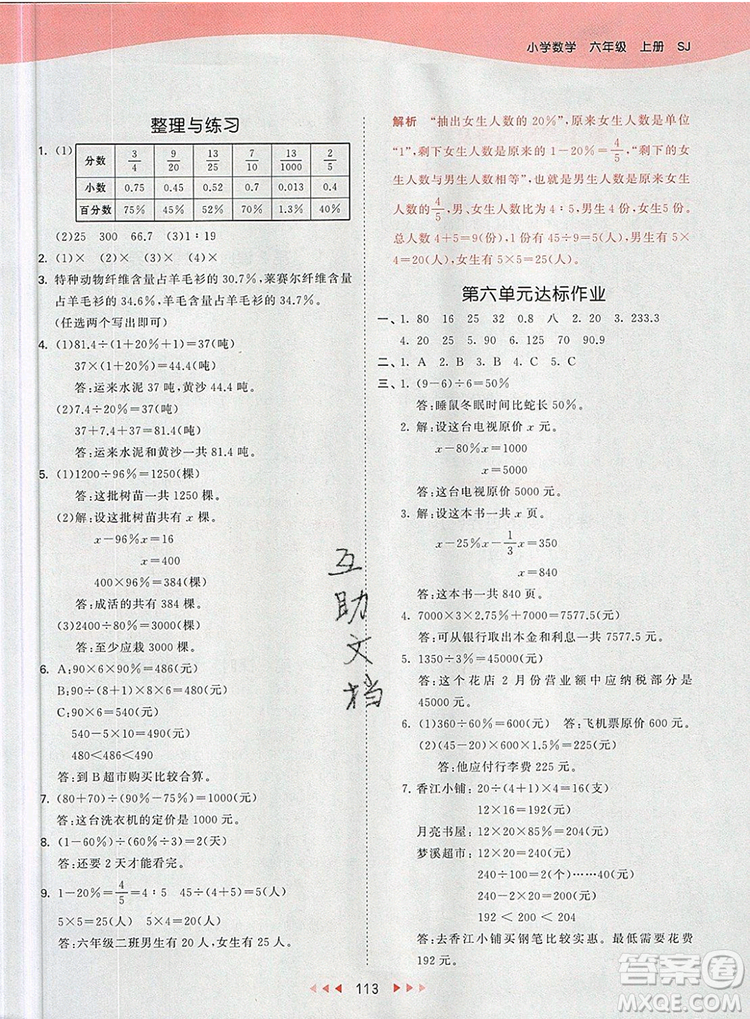 小学数学 六年级 上册 SJ
整理与练习
1. (1)
分数 3/4 9/20 13/25 7/10 13/1000 2/5
小数 0.75 0.45 0.52 0.7 0.013 0.4
百分数 75% 45% 52% 70% 1.3% 40%
(2)25 300 66.7 (3)1∶19
2. (1)× (2)× (3)× (4)×
3. 特种动物纤维含量占羊毛衫的 30.7%,莱赛尔纤维含量
占羊毛衫的 34.6%,羊毛含量占羊毛衫的 34.7%。
(任选两个写出即可)
4. (1)81.4÷(1+20%+1)=37(吨)
37×(1+20%)=44.4(吨)
答:运来水泥 37 吨,黄沙 44.4 吨。
(2)7.4÷20%=37(吨)
37+7.4+37=81.4(吨)
答:运来水泥和黄沙一共 81.4 吨。
5. (1)1200÷96%=1250(棵)
答:这批树苗一共 1250 棵。
(2)解:设这批树苗共有 x 棵。
x-96%x=16
x=400
400×96%=384(棵)
答:成活的共有 384 棵。
(3)2400÷80%=3000(棵)
答:至少应栽 3000 棵。
6. A:90×6×90%=486(元)
B:90÷(8+1)×8×6=480(元)
C:90×6=540(元)
540-5×10=490(元)
480<486<490
答:到 B 超市购买比较合算。
7. (80+70)÷(90%-75%)=1000(元)
答:这台洗衣机的定价是 1000 元。
8. (1-60%)÷(60%÷3)=2(天)
答:还要 2 天才能看完。
9. 1-20%=4/5=4∶5 45÷(4+5)=5(人)
5×5=25(人) 5×4=20(人)
答:六年级二班男生有 20 人,女生有 25 人。
解析 “抽出女生人数的 20%”,原来女生人数是单位
“1”,剩下女生人数是原来的 1-20%=4/5,“剩下的女
生人数与男生人数相等”,也就是男生人数是原来女生
人数的 4/5,男、女生人数比 4∶5,男生 4 份,女生 5 份。
总人数 4+5=9(份),1 份有 45÷9=5(人),女生 5×
5=25(人),男生 5×4=20(人)。
第六单元达标作业
一、1. 80 16 25 32 0.8 八 2. 20 3. 233.3
4. 20 25 5. 90 6. 125 70 90.9
二、1. A 2. B 3. B 4. C 5. C
三、1. (9-6)÷6=50%
答:睡鼠冬眠时间比蛇长 50%。
2. 解:设这台电视原价 x 元。
x-80%x=1000
x=5000
答:这台电视原价 5000 元。
3. 解:设这本书一共 x 页。
x-25%x-1/3x=350
x=840
答:这本书一共 840 页。
4. 7000×3×2.75%+7000=7577.5(元)
答:可从银行取出本金和利息一共 7577.5 元。
5. 1350÷3%=45000(元)
答:这个花店 2 月份营业额中应纳税部分是
45000 元。
6. (1)360÷60%=600(元) 答:飞机票原价 600 元。
(2)(45-20)×600×1.5%=225(元)
答:他应付行李费 225 元。
7. 香江小铺: 20÷(4+1)×4=16(支)
12×16=192(元)
月亮书屋: 12×20×85%=204(元)
梦溪超市: 12×20=240(元)
240÷100=2(个)……40(元)
240-20×2=200(元)
192 < 200 < 204
答:去香江小铺买钢笔比较实惠。最低需付费
192 元。
互助文档
113
答案圈
MXQE.COM